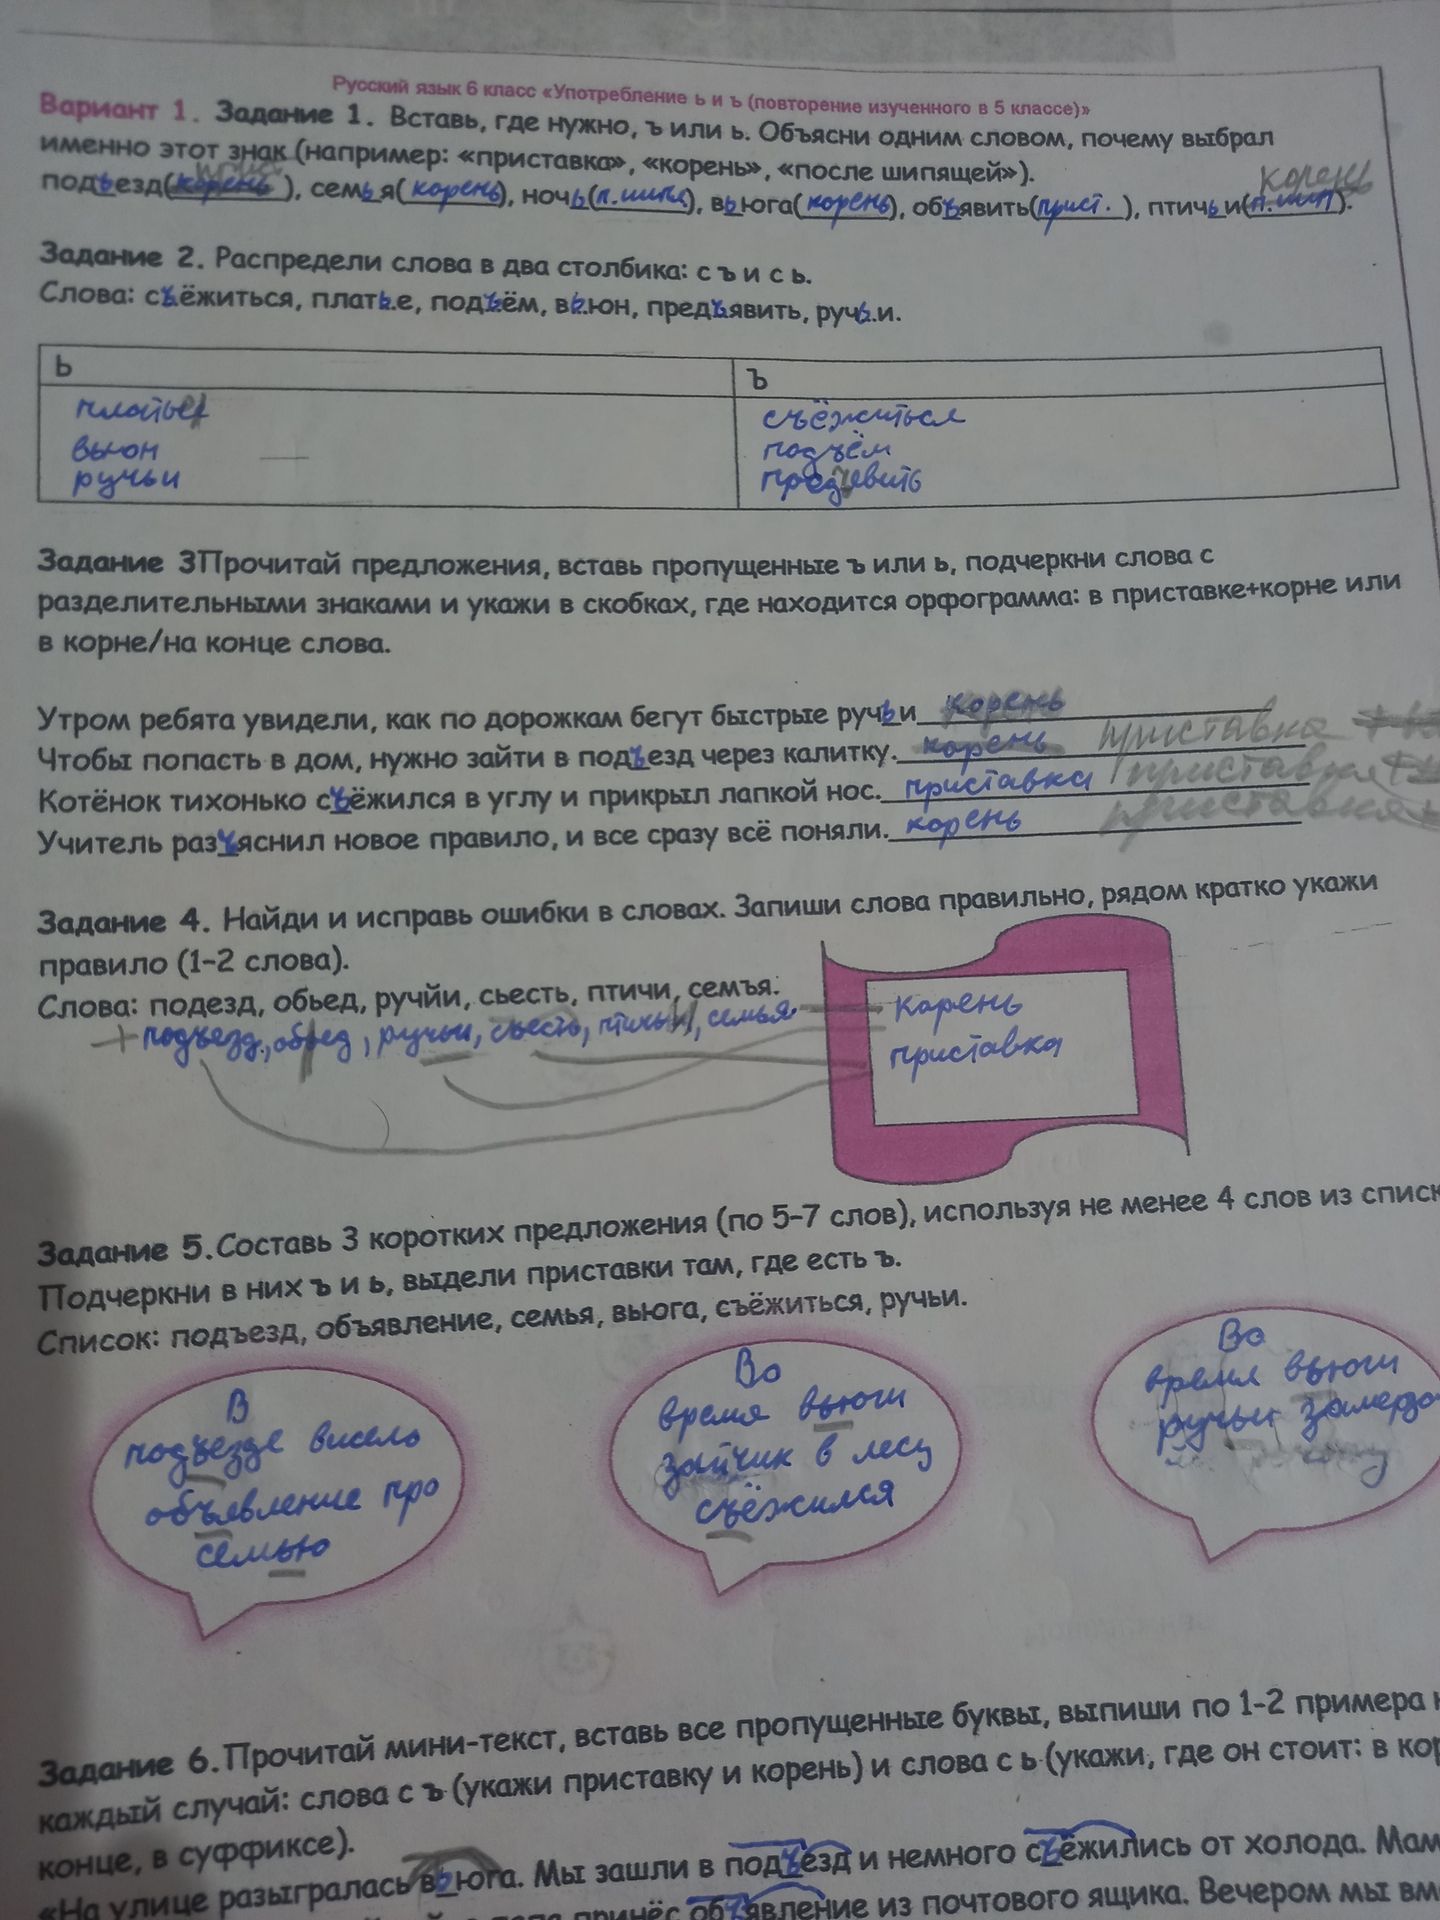 Русский язык 6 класс «Употребление ь и ъ (повторение изученного в 5 классе)»
Вариант 1. Задание 1. Вставь, где нужно, ъ или ь. Объясни одним словом, почему выбрал
именно этот знак (например: «приставка», «корень», «после шипящей»).
корень
подъезд(корень), семья(корень), ночь(п.шипящ), вьюга(корень), объявить(прист.), птичьи(п.шип).
Задание 2. Распредели слова в два столбика: с ъ и с ь.
Слова: съёжиться, платье, подъём, вьюн, предъявить, ручьи.
Ь Ъ
платье съёжиться
вьюн подъём
ручьи предъевить
Задание 3Прочитай предложения, вставь пропущенные ъ или ь, подчеркни слова с
разделительными знаками и укажи в скобках, где находится орфограмма: в приставке+корне или
в корне/на конце слова.
Утром ребята увидели, как по дорожкам бегут быстрые ручьи корень
Чтобы попасть в дом, нужно зайти в подъезд через калитку. корень приставка
Котёнок тихонько съёжился в углу и прикрыл лапкой нос. приставка приставка
Учитель разъяснил новое правило, и все сразу всё поняли. корень приставка
Задание 4. Найди и исправь ошибки в словах. Запиши слова правильно, рядом кратко укажи
правило (1-2 слова).
Слова: подезд, обьед, ручйи, сьесть, птичи, семъя.
подъезд, обед, ручьи, съесть, птичьи, семья.
корень
приставка
Задание 5.Составь 3 коротких предложения (по 5-7 слов), используя не менее 4 слов из списк
Подчеркни в них ъ и ь, выдели приставки там, где есть ъ.
Список: подъезд, объявление, семья, вьюга, съёжиться, ручьи.
В
подъезде висело
объявление про
семью
Во
время вьюги
зайчик в лесу
съёжился
Во
время вьюги
ручьи замерзо
Задание 6.Прочитай мини-текст, вставь все пропущенные буквы, выпиши по 1-2 примера н
каждый случай: слова с ъ (укажи приставку и корень) и слова с ь (укажи, где он стоит: в кор
конце, в суффиксе).
«На улице разыгралась вьюга. Мы зашли в подъезд и немного съёжились от холода. Мам
принёс объявление из почтового ящика. Вечером мы вм